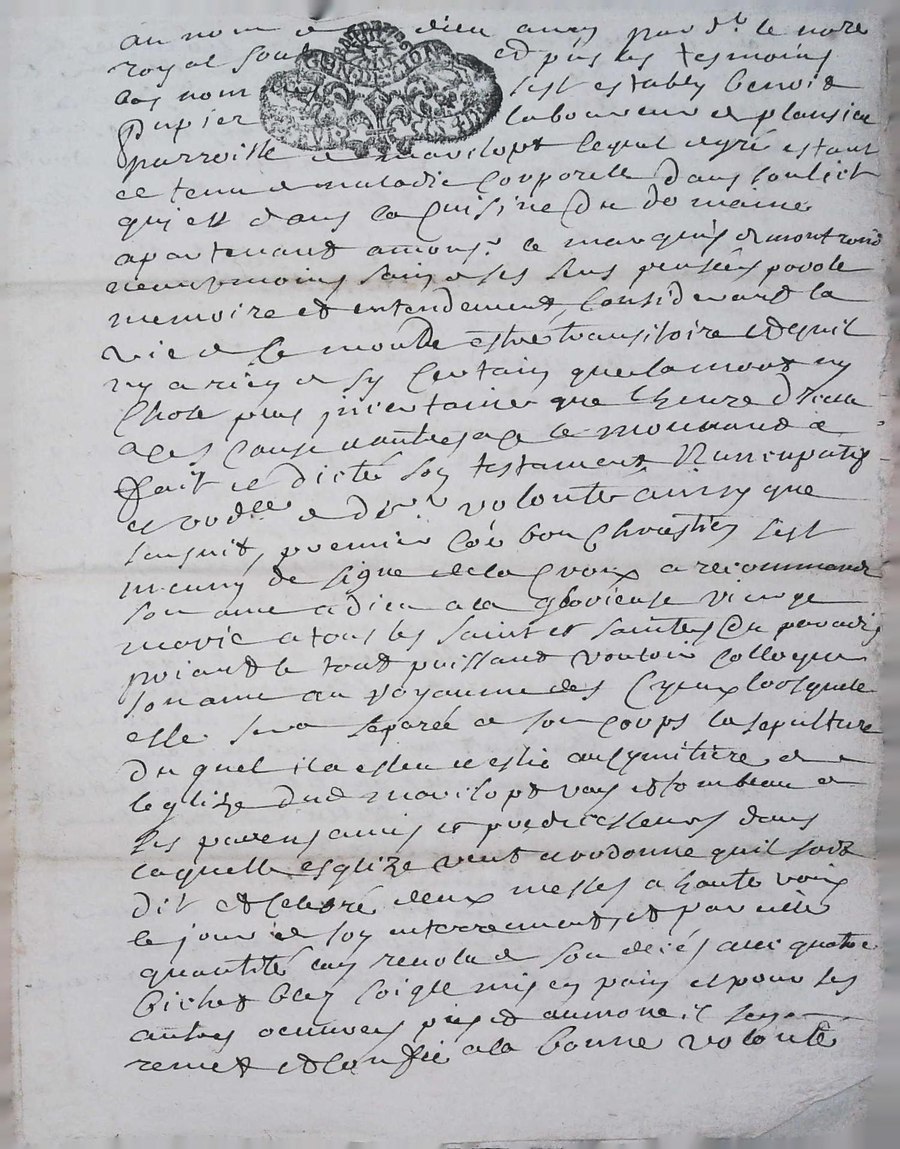 au nom de dieu amen par dt le nore
royal soub et pnts les tesmoins
bas nom sest estably benoit
Dupier laboureur de plansieu
parroisse de marilopt lequel egré estant
detenu de maladie corporelle dans son lict
qui est dans la cuisine du domaine
apartenant a monsr le marquis de montrond
neantmoins sain de ses sens pensées parole
memoire et entendement, considerant la
vie de ce monde estre transitoire et quil
ny a rien de sy certain que la mort ny
chose plus incertaine que lheure dicelle
a ces causes le mouvant a
fait et dicté son testament nuncupatif
et ordce de dre volonté ainsy que
sensuit, premier coe bon chrestien sest
muny du signe de la croix a recommandé
son ame a dieu a la glorieuse vierge
marie a tous les saint et saintes du paradis
priant le tout puissant vouloir colloquer
son ame au royaume des cyeux lorsquelle
elle sera separée de son corps la sepulture
du quel il a esleu estre au cymitiere de
leglize dud marilopt vas et tombeau de
ses parens amis et predecesseurs dans
laquelle esglize veut et ordonne quil soit
dit et celebré deux messes a haute voix
le jour de son enterrement, et pareille
quantité au revolu de son decés avec quatre
bichet bled soigle mis en pain et pour les
autres oeuvres pies et aumone il sen
remet et confie a la bonne volonté